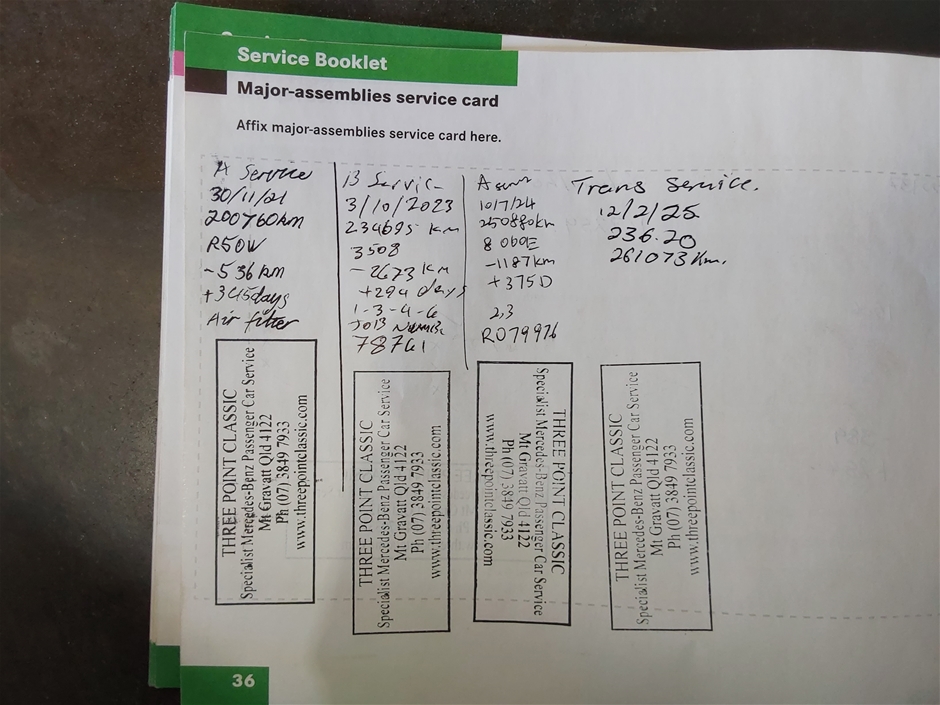 Service Booklet
Major-assemblies service card
Affix major-assemblies service card here.
A Service
30/11/21
200760km
R50W
-536km
+345days
Air filter
B Servic
3/10/2023
234695 km
3508
-2673 km
+294 days
1-3-4-6
JOB Numbe
78761
A
10/7/24
250880km
-1187km
+375D
2,3
R079926
Trans Service.
12/2/25
236.20
261073 Km.
THREE POINT CLASSIC
Specialist Mercedes-Benz Passenger Car Service
Mt Gravatt Qld 4122
Ph (07) 3849 7933
www.threepointclassic.com
THREE POINT CLASSIC
Specialist Mercedes-Benz Passenger Car Service
Mt Gravatt Qld 4122
Ph (07) 3849 7933
www.threepointclassic.com
THREE POINT CLASSIC
Specialist Mercedes-Benz Passenger Car Service
Mt Gravatt Qld 4122
Ph (07) 3849 7933
www.threepointclassic.com
THREE POINT CLASSIC
Specialist Mercedes-Benz Passenger Car Service
Mt Gravatt Qld 4122
Ph (07) 3849 7933
www.threepointclassic.com
36